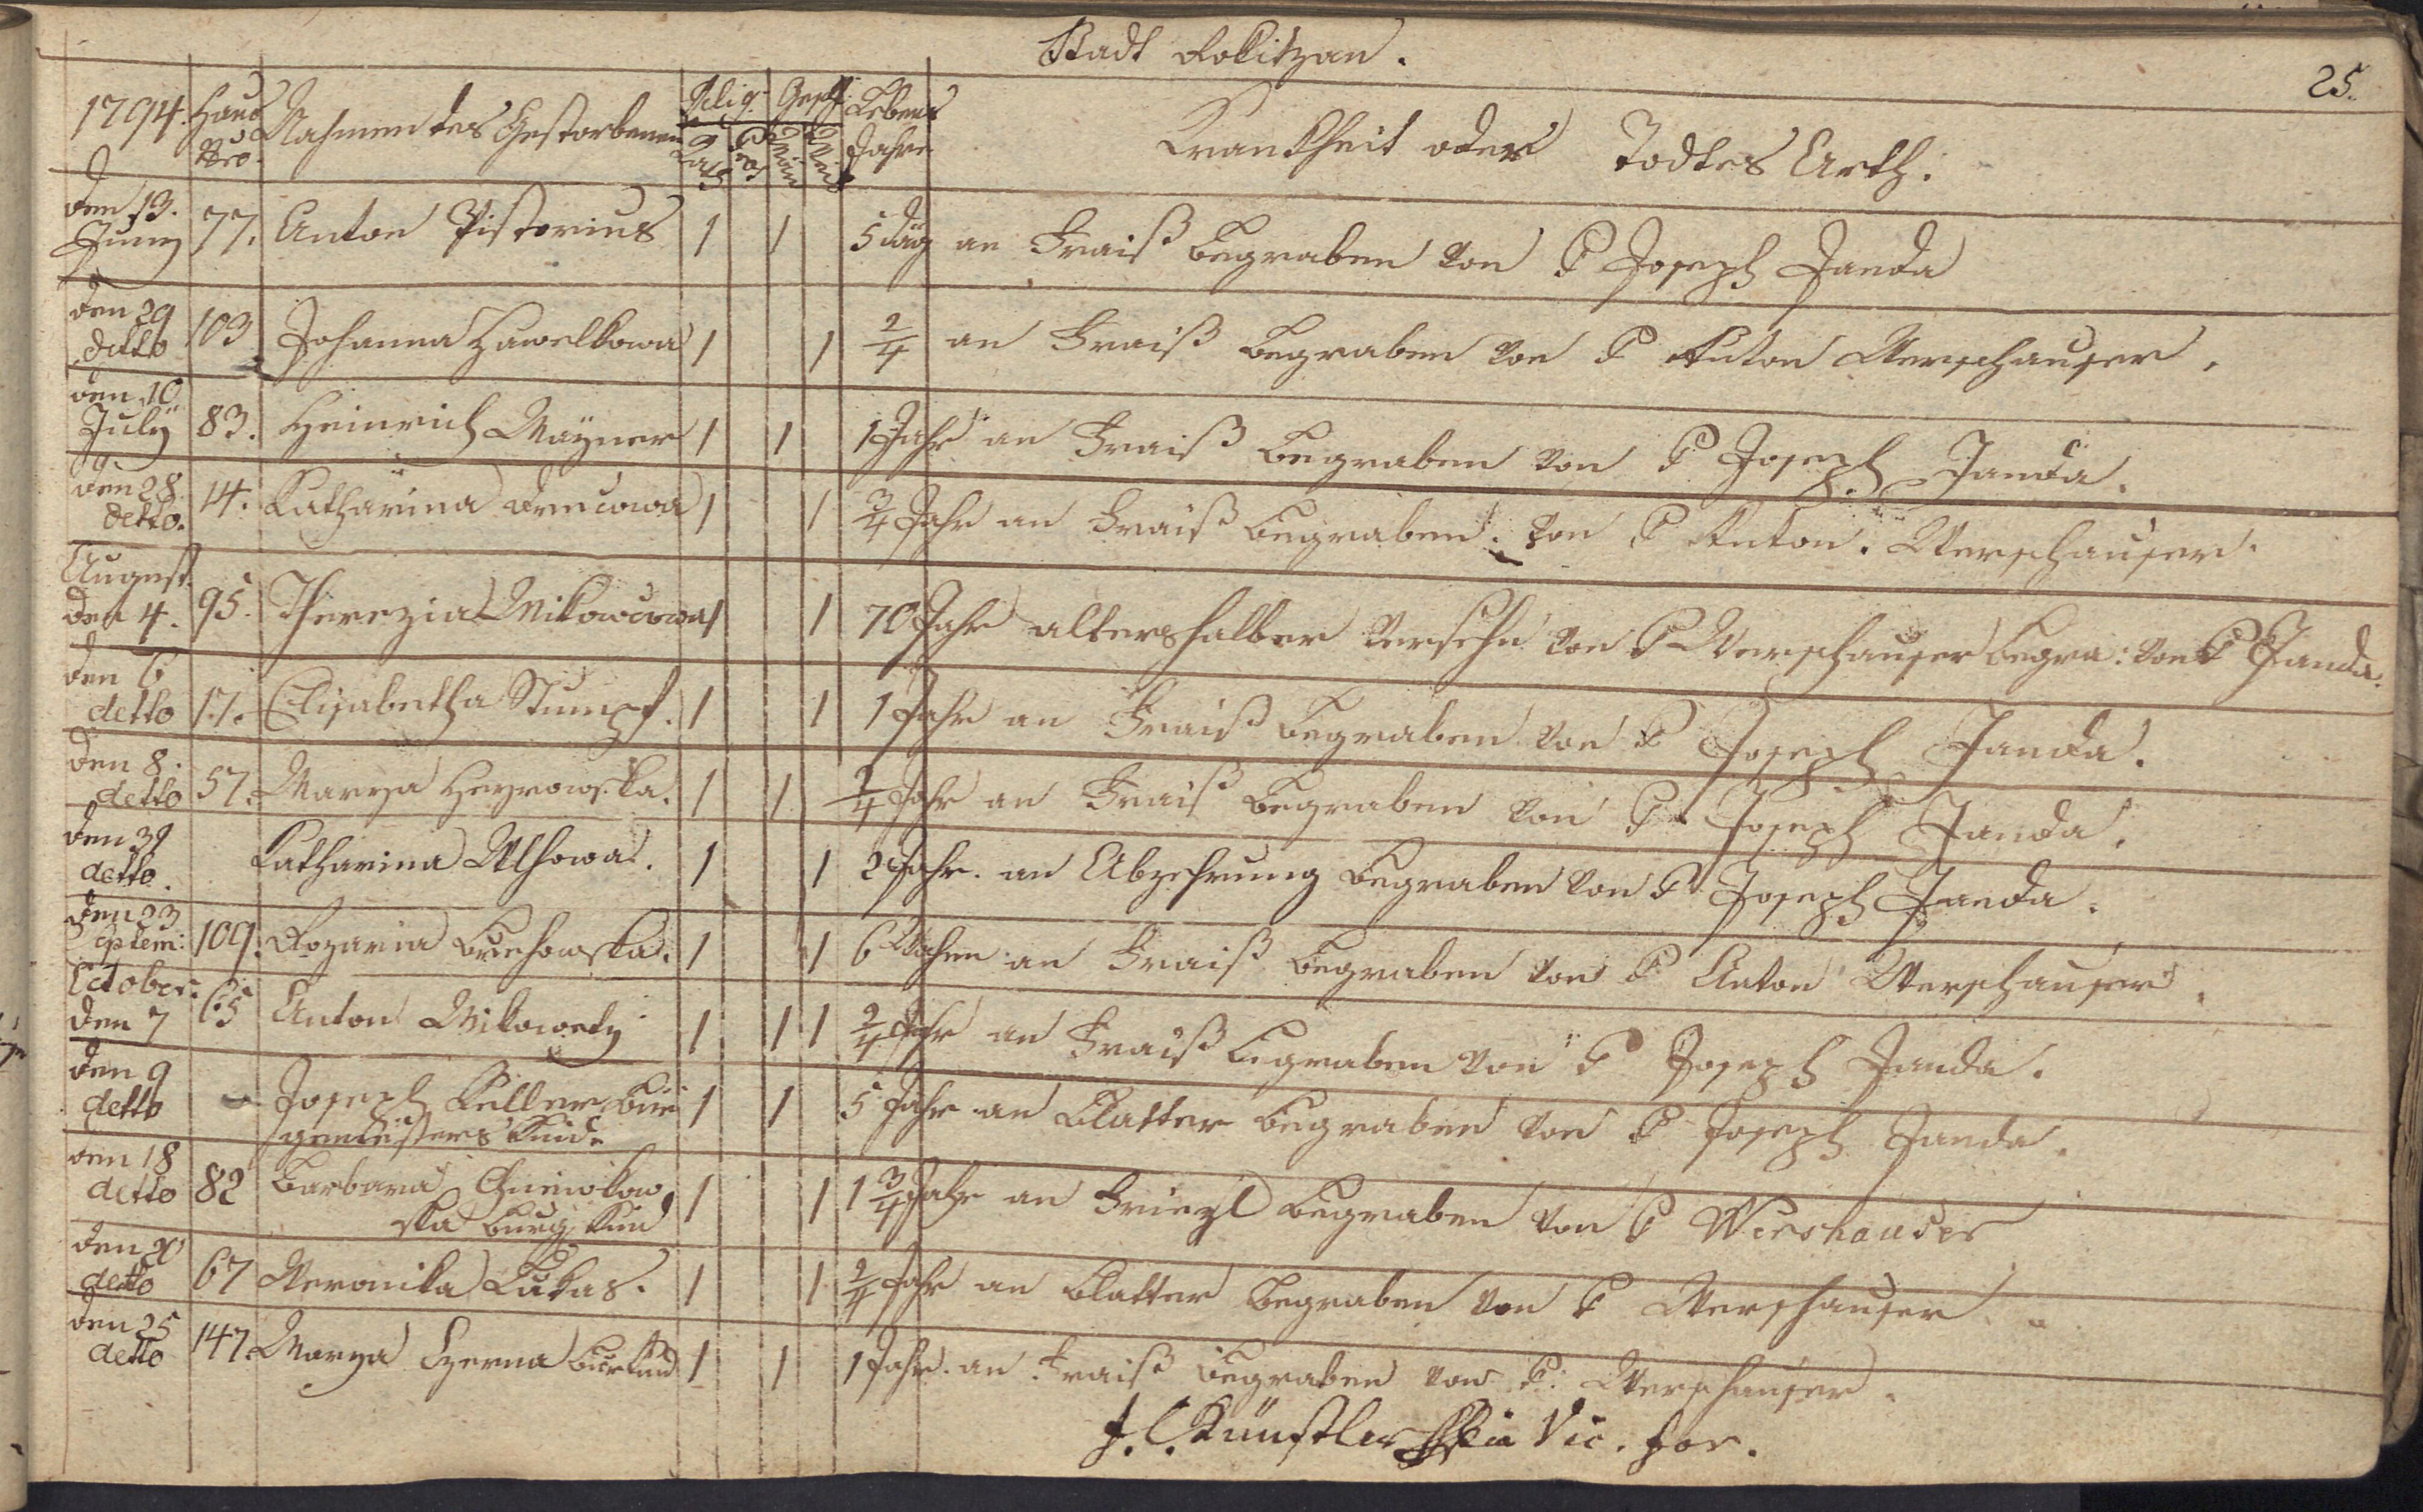 Stadt Rokitzan.
25.
1794. Haus Nro. Nahmen des Gestorbenen Relig. Gesch. Lebens Jahre Krankheit oder Todtes Arth.
den 13. Juny 77. Anton Pistorius 1 1 5 däg an Fraiß begraben von P Joseph Janda
den 29 detto 103 Johanna Hawelkowa 1 1 2/4 an Fraiß begraben von P Anton Werschauser.
den 10 July 83. Heinrich Mayner 1 1 1 Jahr an Fraiß begraben von P Joseph Janda.
den 28. detto. 14. Katharina 1 1 3/4 Jahr an Fraiß begraben. von P Anton. Werschauser.
August. den 4. 95. Therezia Mikowcowa 1 1 70 Jahr altershalber versehn von P Werschauser begra: von P Janda.
den 6 detto 17. Elisabetha Stumpf. 1 1 1 Jahr an Fraiß begraben von P Joseph Janda.
den 8. detto 57. Marya Heyrowska. 1 1 1/4 Jahr an Fraiß begraben von P Joseph Janda.
den 31 detto. Katharina 1 1 2 Jahr. an Abzehrung begraben von P Joseph Janda.
den 23 Septem: 109. Rozaria 1 1 6 Wochen an Fraiß begraben von P Anton Werschauser.
October. den 7 65 Anton Mikowetz 1 1 1 2/4 Jahr an Fraiß begraben von P Joseph Janda.
den 9 detto – Joseph Keller Bür 1 1 5 Jahr an Blatter begraben von P Joseph Janda.
germeisters Kind.
den 18 detto 82 Barbara 1 1 1 3/4 Jahr an Friezl begraben von P Wershauser
ska burg. Kind
den 20 detto 67 Weronika Lukas. 1 1 2/4 Jahr an Blatter begraben von P Werschauser
den 25 detto 147. Marya Czerna bur Kind 1 1 1 Jahr. an Fraiß begraben von P. Werschauser.
J. C. Künstler Vic. for.